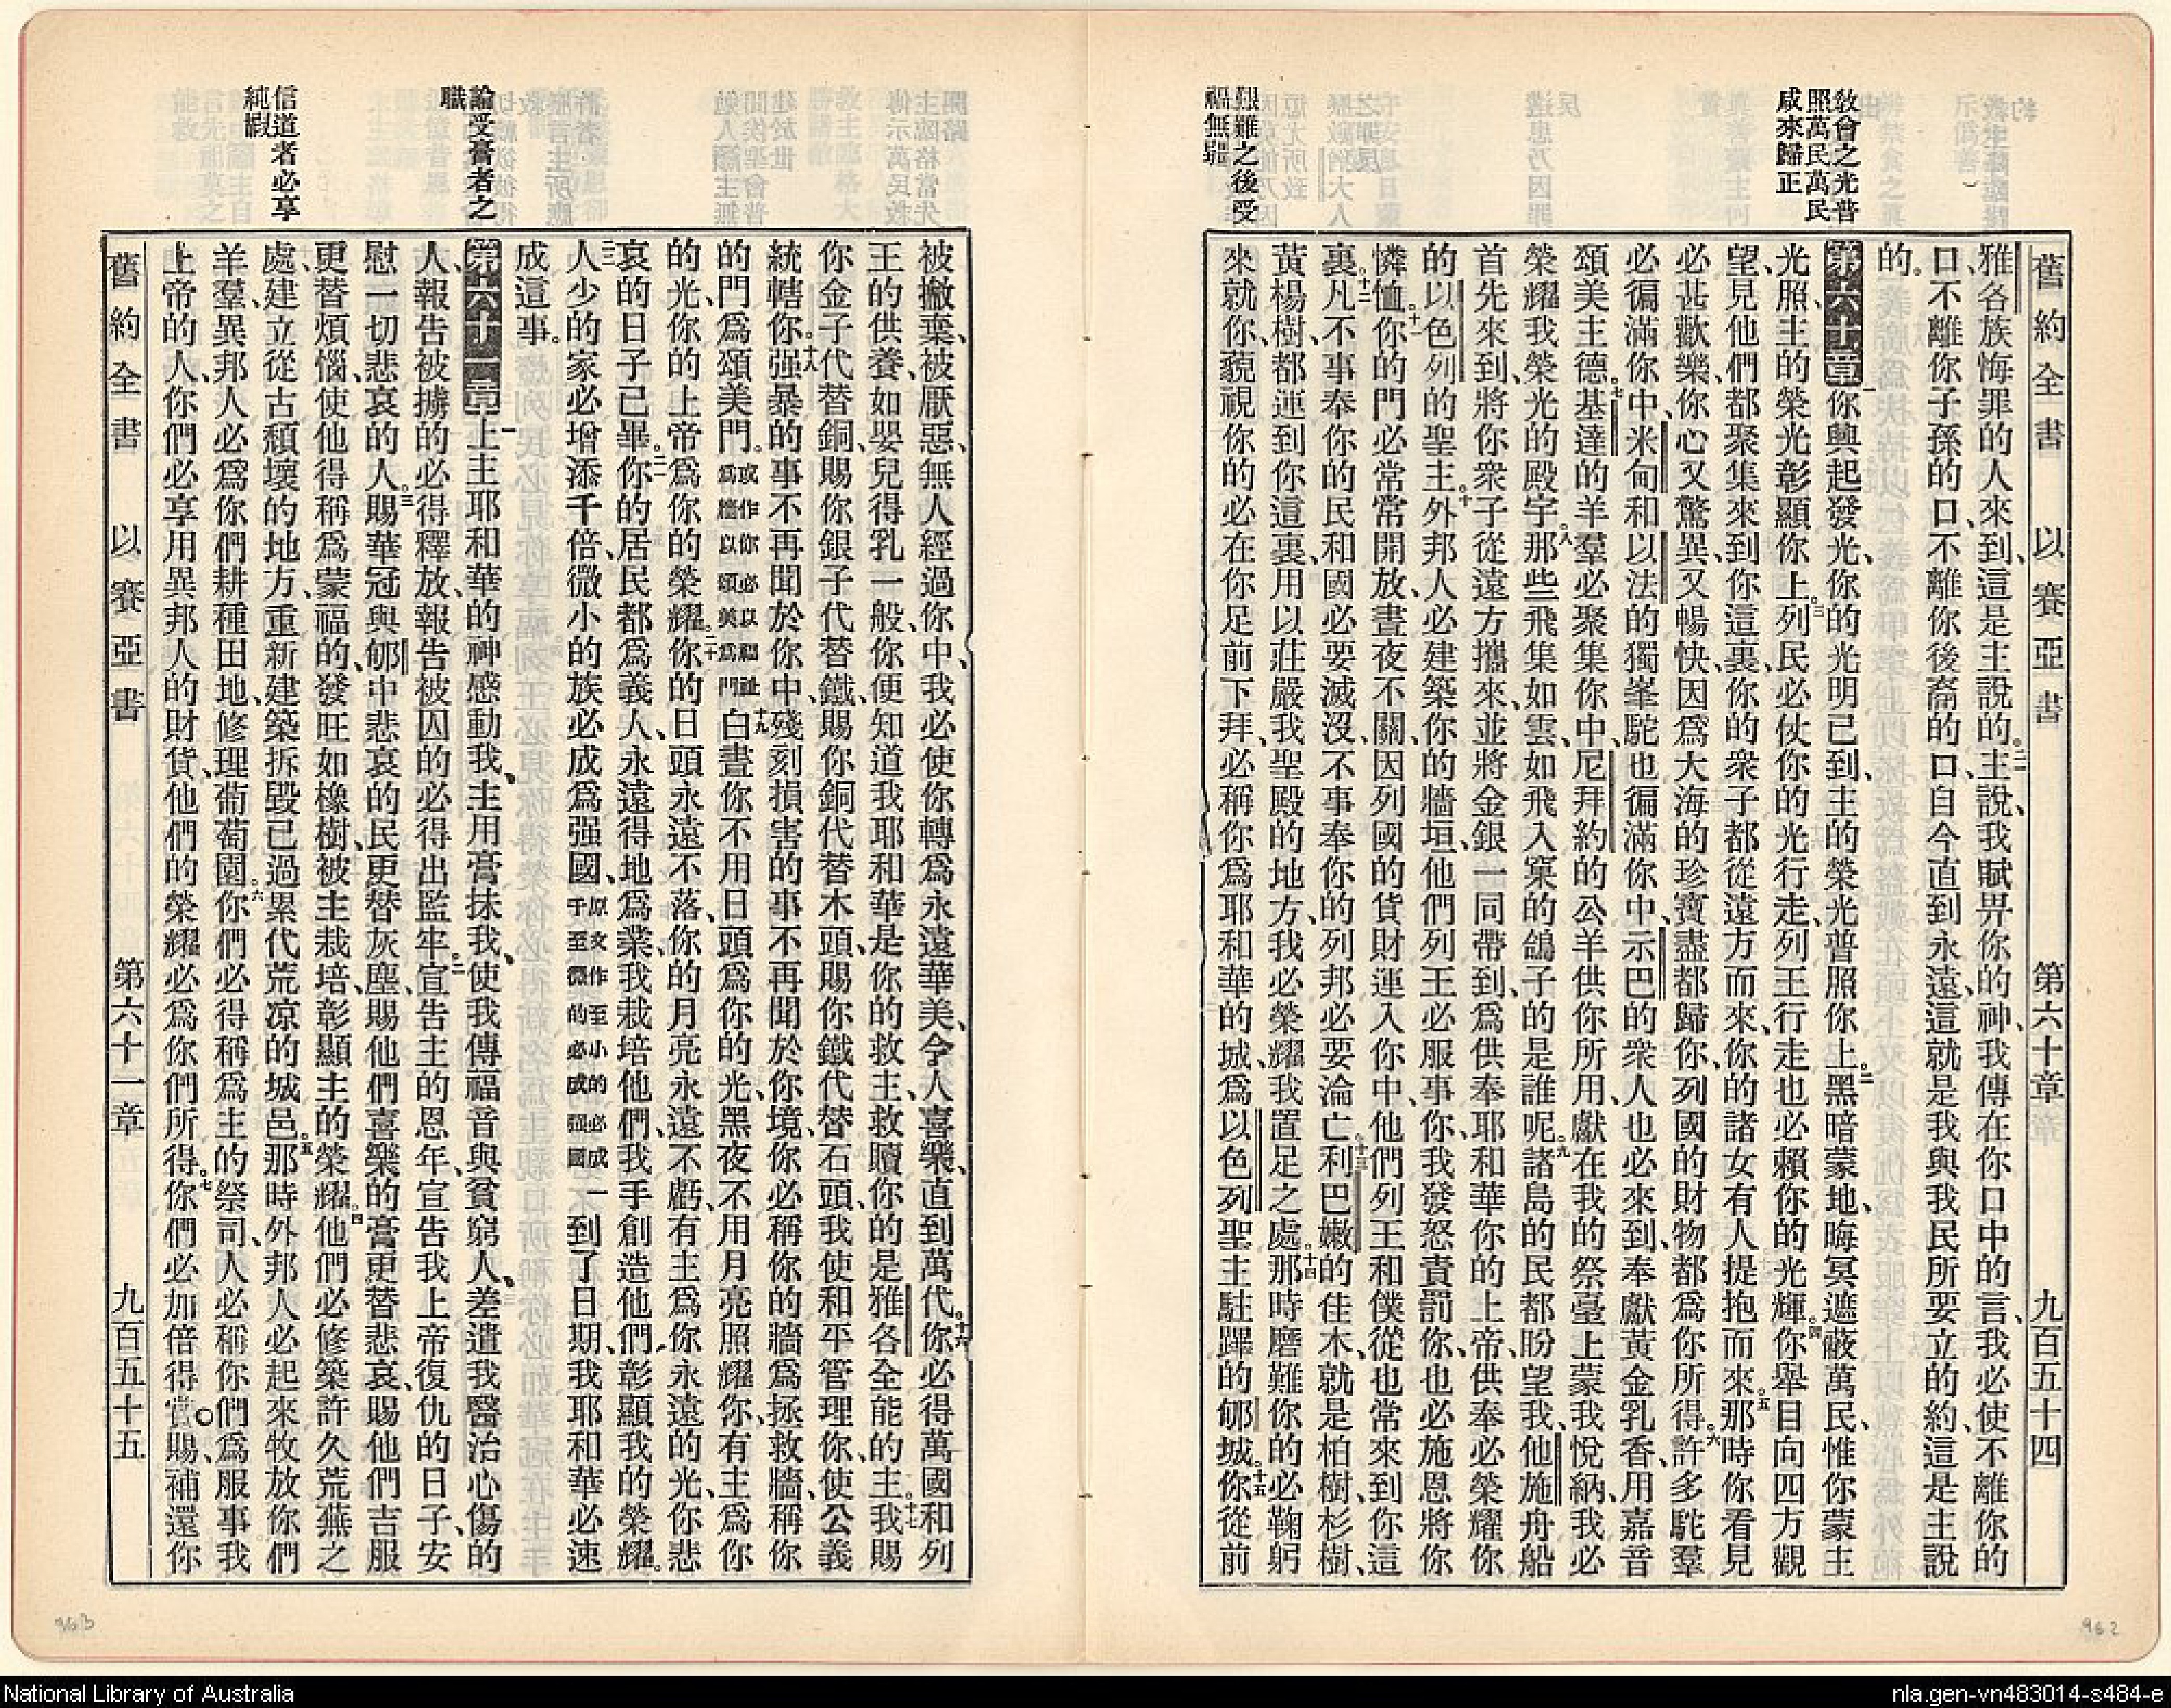 舊約全書 以賽亞書 第六十章 九百五十四
教會之光普
照萬民萬民
咸來歸正
艱難之後受
福無疆
雅各族悔罪的人來到、這是主說的。二一主說、我賦畀你的神、我傳在你口中的言、我必使不離你的
口、不離你子孫的口、不離你後裔的口、自今直到永遠、這就是我與我民所要立的約、這是主說
的。
第六十章 一你興起發光、你的光明已到、主的榮光普照你上。二黑暗蒙地、晦冥遮蔽萬民、惟你蒙主
光照、主的榮光彰顯你上。三列民必仗你的光行走、列王行走也必賴你的光輝。四你舉目向四方觀
望、見他們都聚集來到你這裏、你的衆子都從遠方而來、你的諸女有人提抱而來。五那時你看見
必甚歡樂、你心又驚異、又暢快、因爲大海的珍寶盡都歸你、列國的財物都爲你所得。六許多駝羣
必徧滿你中、米甸和以法的獨峯駝也徧滿你中、示巴的衆人也必來到、奉獻黃金乳香、用嘉音
頌美主德。七基達的羊羣必聚集你中、尼拜約的公羊供你所用、獻在我的祭臺上蒙我悅納、我必
榮耀我榮光的殿宇。八那些飛集如雲、如飛入窠的鴿子的是誰呢。九諸島的民都盼望我、他施舟船
首先來到、將你衆子從遠方攜來、並將金銀一同帶到、爲供奉耶和華你的上帝、供奉必榮耀你
的以色列的聖主。十外邦人必建築你的牆垣、他們列王必服事你、我發怒責罰你、也必施恩將你
憐恤。十一你的門必常常開放、晝夜不關、因列國的貨財運入你中、他們列王和僕從也常來到你這
裏。十二凡不事奉你的民和國必要滅沒、不事奉你的列邦必要淪亡。十三利巴嫩的佳木、就是柏樹、杉樹、
黃楊樹、都運到你這裏、用以莊嚴我聖殿的地方、我必榮耀我置足之處。十四那時磨難你的必鞠躬
來就你、藐視你的必在你足前下拜、必稱你爲耶和華的城、爲以色列聖主駐蹕的郇城。十五你從前
被撇棄、被厭惡、無人經過你中、我必使你轉爲永遠華美、令人喜樂、直到萬代。十六你必得萬國和列
王的供養、如嬰兒得乳一般、你便知道我耶和華是你的救主、救贖你的是雅各全能的主。十七我賜
你金子代替銅、賜你銀子代替鐵、賜你銅代替木頭、賜你鐵代替石頭、我使和平管理你、使公義
統轄你。十八强暴的事不再聞於你中、殘刻損害的事不再聞於你境、你必稱你的牆爲拯救牆、稱你
的門爲頌美門。或作你必以福祉爲牆以頌美爲門十九白晝你不用日頭爲你的光、黑夜不用月亮照耀你、有主爲你
的光、你的上帝爲你的榮耀。二十你的日頭永遠不落、你的月亮永遠不虧、有主爲你永遠的光、你悲
哀的日子已畢。二一你的居民都爲義人、永遠得地爲業、我栽培他們、我手創造他們、彰顯我的榮耀。
二二人少的家必增添千倍、微小的族必成爲强國、原文作至小的必成千至微的必成强國一到了日期、我耶和華必速
成這事。
論受膏者之
職
信道者必享
純嘏
第六十一章 一上主耶和華的神感動我、主用膏抹我、使我傳福音與貧窮人、差遣我醫治心傷的
人、報告被擄的必得釋放、報告被囚的必得出監牢。二宣告主的恩年、宣告我上帝復仇的日子、安
慰一切悲哀的人。三賜華冠與郇中悲哀的民、更替灰塵、賜他們喜樂的膏更替悲哀、賜他們吉服
更替煩惱、使他得稱爲蒙福的、發旺如橡樹、被主栽培、彰顯主的榮耀。四他們必修築許久荒蕪之
處、建立從古頹壞的地方、重新建築拆毀已過累代荒凉的城邑。五那時外邦人必起來牧放你們
羊羣、異邦人必爲你們耕種田地、修理葡萄園。六你們必得稱爲主的祭司、人必稱你們爲服事我
上帝的人、你們必享用異邦人的財貨、他們的榮耀必爲你們所得。七你們必加倍得賞賜、補還你
舊約全書 以賽亞書 第六十一章 九百五十五
963
962
National Library of Australia
nla.gen-vn483014-s484-e